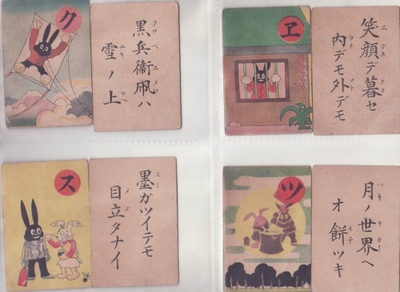 ク
黒兵衛凧ハ
雪ノ上
ヱ
笑顔デ暮セ
内デモ外デモ
ス
墨ガツイテモ
目立タナイ
ツ
月ノ世界ヘ
オ餅ツキ